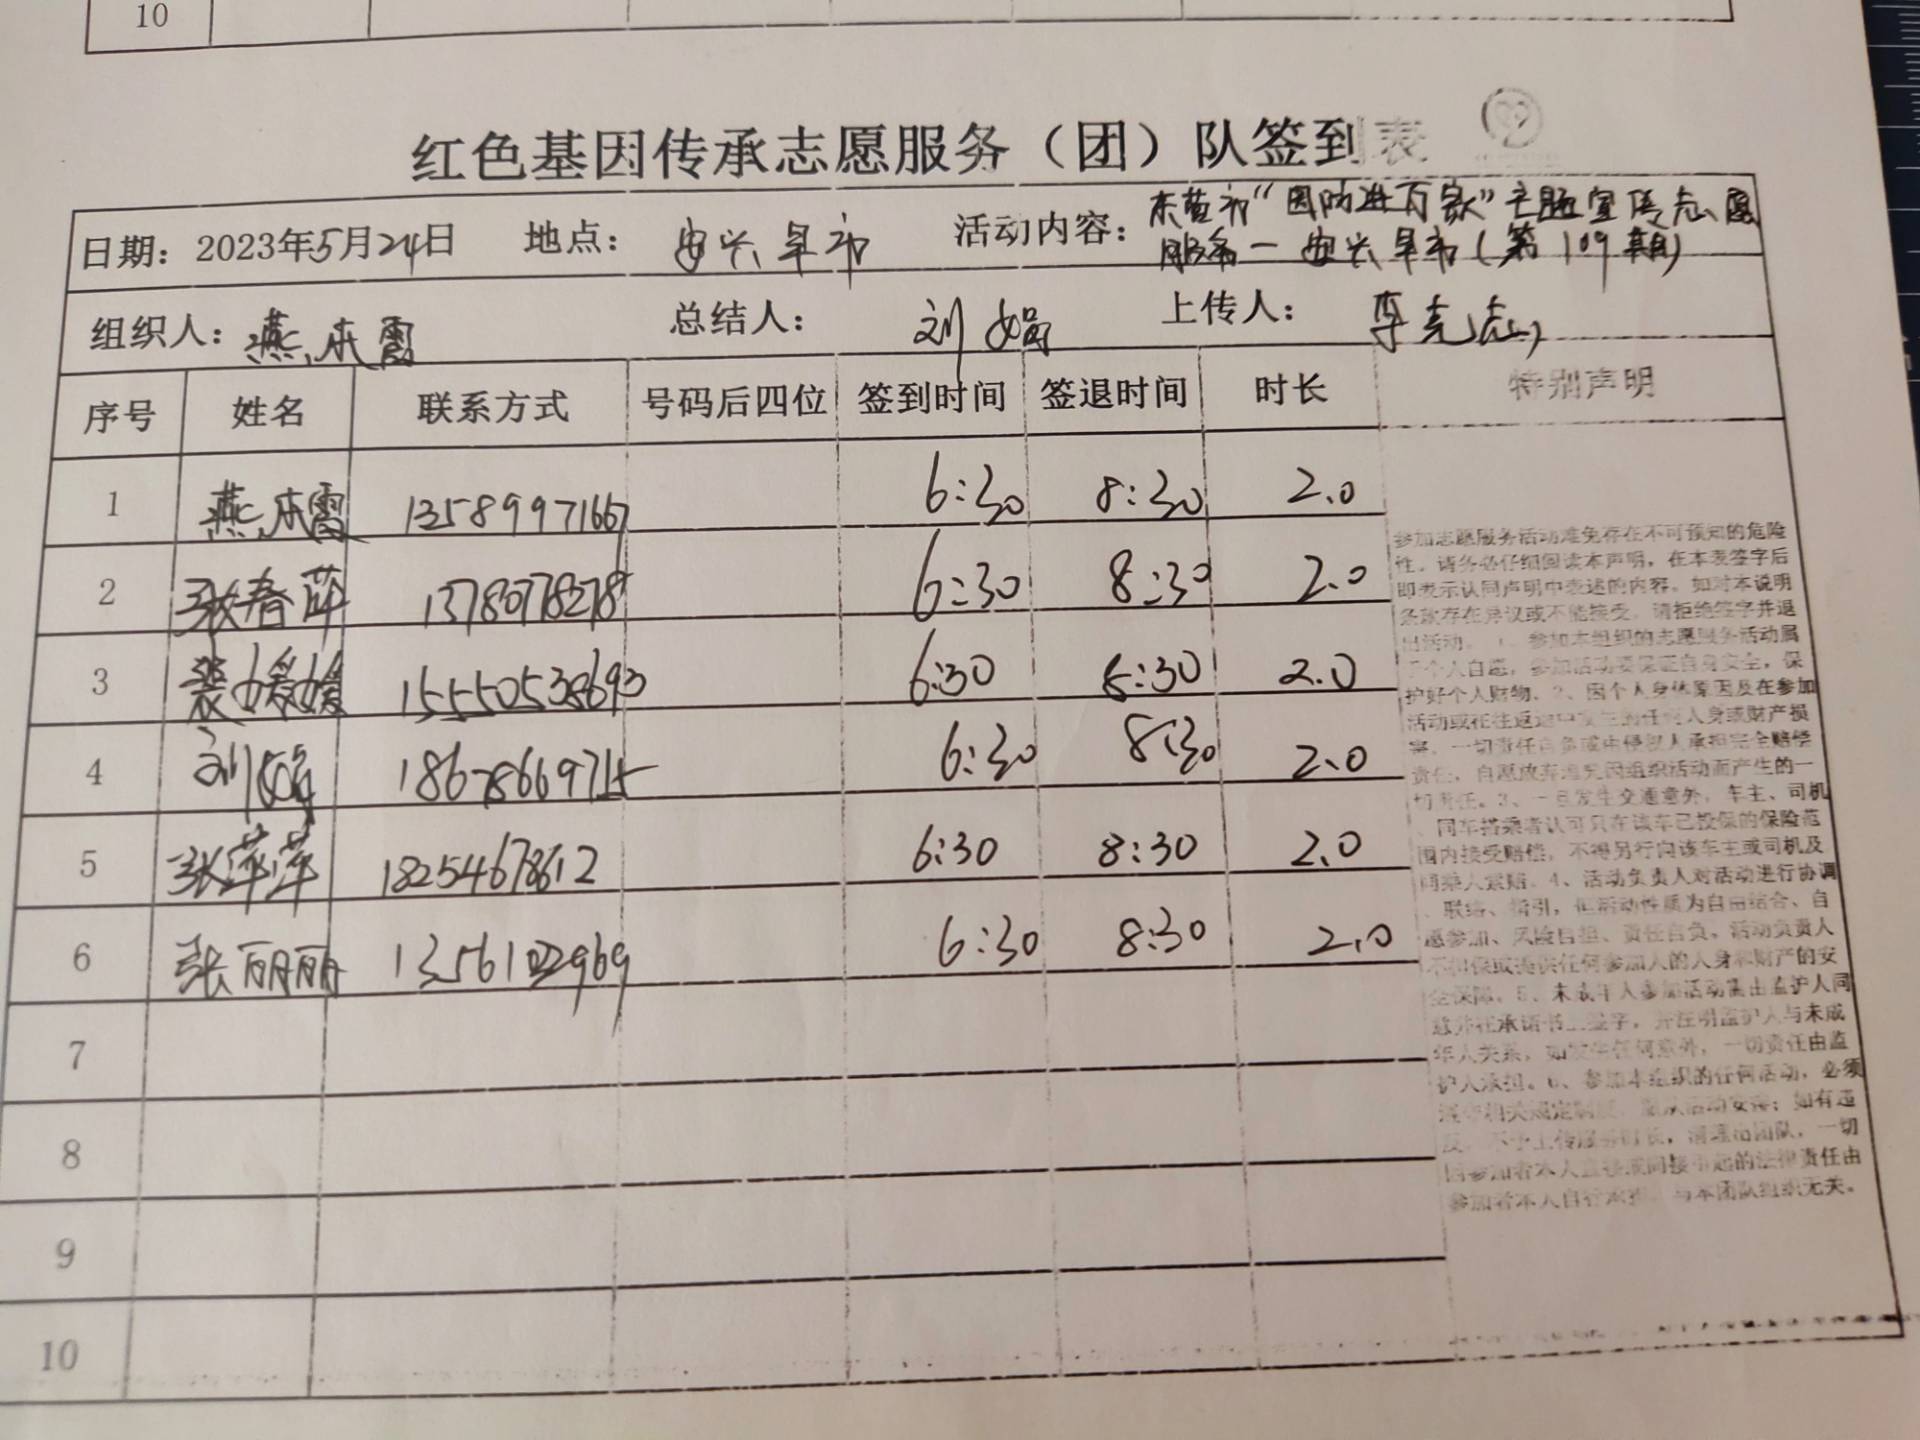 10
红色基因传承志愿服务（团）队签到表
日期：2023年5月24日 地点：安兴早市 活动内容：东营市“国防进百家”主题宣传志愿
服务—安兴早市（第109期）
组织人：燕本霞 总结人：刘娟 上传人：李克志
序号 姓名 联系方式 号码后四位 签到时间 签退时间 时长 特别声明
1 燕本霞 13589971667 6:30 8:30 2.0
2 张春萍 13780778278 6:30 8:30 2.0
3 裴媛媛 15550538693 6:30 8:30 2.0
4 刘娟 18678669715 6:30 8:30 2.0
5 张萍萍 18254678612 6:30 8:30 2.0
6 张丽丽 6:30 8:30 2.0
7
8
9
10
参加志愿服务活动难免存在不可预知的危险
性，请务必仔细阅读本声明，在本表签字后
即表示认同声明中表述的内容。如对本说明
条款存在异议或不能接受，请拒绝签字并退
出活动。1、参加本组织的志愿服务活动属
于个人自愿，参加活动要保证自身安全，保
护好个人财物。2、因个人身体原因及在参加
活动或在往返途中发生的任何人身或财产损
害，一切责任自负或由侵权人承担完全赔偿
责任，自愿放弃追究因组织活动而产生的一
切责任。3、一旦发生交通意外，车主、司机
、同车搭乘者认可只在该车已投保的保险范
围内接受赔偿，不得另行向该车主或司机及
同乘人索赔。4、活动负责人对活动进行协调
、联络、指引，但活动性质为自由结合、自
愿参加、风险自担、责任自负，活动负责人
不担保或提供任何参加人的人身和财产的安
全保障。5、未成年人参加活动需由监护人同
意并在承诺书上签字，并注明监护人与未成
年人关系，如发生任何意外，一切责任由监
护人承担。6、参加本组织的任何活动，必须
遵守相关规定制度，服从活动安排；如有违
反，不予上传服务时长，清理出团队，一切
因参加者本人直接或间接引起的法律责任由
参加者本人自行承担，与本团队组织无关。